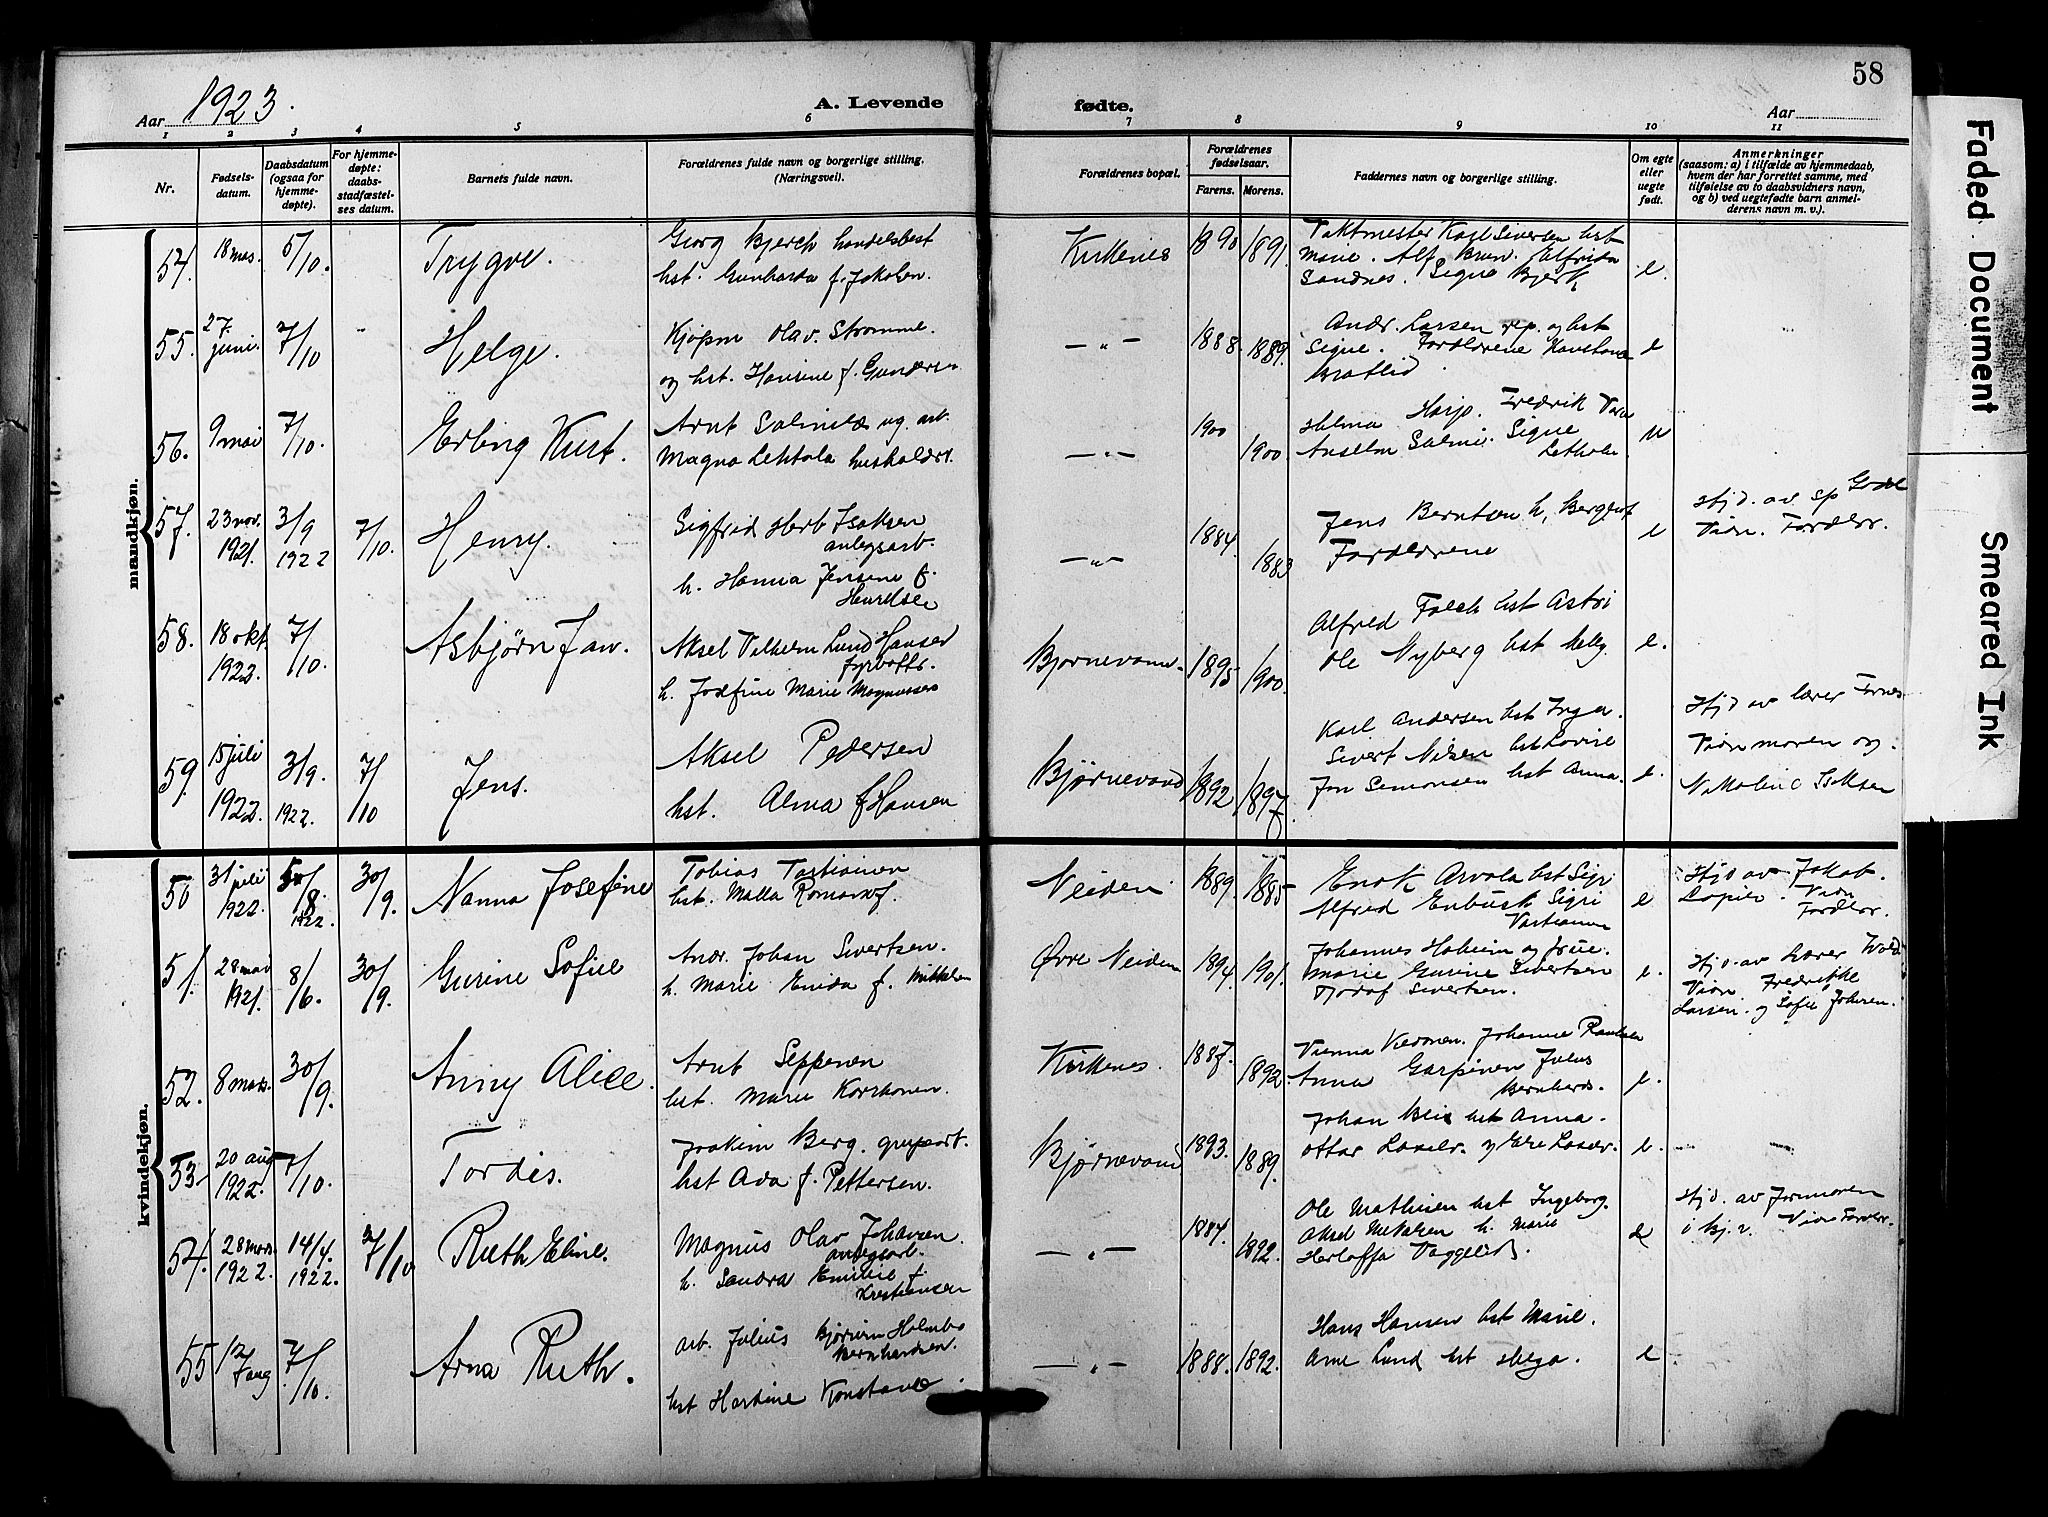 58
Aar 1923.
A. Levende
fødte.
Aar
1 2 3 4 5 6 7 8 9 10 11
Nr.
Fødsels-
datum.
Daabsdatum
(ogsaa for
hjemme-
døpte).
For hjemme-
døpte:
daabs-
stadfæstel-
ses datum.
Barnets fulde navn.
Forældrenes fulde navn og borgerlige stilling.
(Næringsvei).
Forældrenes bopæl.
Forældrenes
fødselsaar.
Farens. Morens.
Faddernes navn og borgerlige stilling.
Om egte
eller
uegte
født.
Anmerkninger
(saasom: a) i tilfælde av hjemmedaab,
hvem der har forrettet samme, med
tilføielse av to daabsvidners navn,
og b) ved uegtefødte barn anmel-
derens navn m. v.).
mandkjøn.
54. 18 mars. 5/10. Trygve.
Georg Bjerch handelsbest
hst. Gunharda f. Jakobsen
Kirkenes 1890 1891
Taktmester Karl Sivertsen hst
Marie. Alf Brun. Elfrida
Sandnes. Signe Bjerk
e.
55. 27. juni. 7/10 Helge.
Kjøpm Olav Strømme.
og hst. Hansine f. Gundersen
— " — 1888. 1889.
Andr. Larsen rep. og hst
Signe. Forældrene
Bratlid
e
56. 9 mai 7/10. Erling Kurt.
Arnt ug. arb.
Magna Lehtola husholders.
— " — 1900 1900.
Hilma Fredrik
Anselm Salmi. Signe
u
57. 23 nov. 1921. 3/9 1922 7/10. Henry.
Sigfrid Herb Isaksen
anlegsarb.
h. Hanna Jensine f.
— " — 1884. 1883
Jens Berntsen h,
Forældrene
e
Hjd. av sp
Vidn. Forældr.
58. 18 okt. 1922. 7/10. Asbjørn Jan.
Aksel Vilhelm Lund Hansen
h. Josefine Marie Magnussen
Bjørnevand. 1895 1900.
Alfred Falch hst Astri
Ole Nyberg hst
e.
59. 15 juli 1922. 3/9. 1922. 7/10 Jens.
Aksel Pedersen
hst. Alma f Hansen
Bjørnevand 1892 1897.
Karl Andersen hst Inga.
Sivert Nilsen hst Lovise
Jon Simonsen hst Anna.
e.
Hjd av lærer Fornes
Vidn moren og
kvindekjøn.
50 31 juli 1922. 8. 1922. 30/9. Nanna Josefine
Tobias
hst. Malla
Neiden 1889. 1885
Enok Arvola hst Sigri
Alfred Enbusk Sigri
e
Hjd av Jakob.
Vidn
Forældr.
51. 28 mai 1921. 8/6. 30/9. Gurine Sofie
Andr. Johan Sivertsen.
h. Marie Enida f. Mikkelsen
Øvre Neiden 1894 1901.
Johannes og frue.
Marie Gurine Sivertsen
Sivertsen.
e.
Hjd. av Lærer
Vidn. Fredrikke
Larsen. og Sofie Johnsen.
52. 8 mars. 30/9. Anny Alice.
Arnt Seppenen
hst. Marie Korhonen.
Kirkenes. 1887. 1892.
Johanne
Anna Julius
Bernhards.
e.
53 20 aug 1922. 7/10. Tordis.
Joakim Berg.
hst Ada f. Pettersen.
Bjørnevand 1893. 1889.
Johan hst Anna.
Ottar
e.
54. 28 mars. 1922. 14/4. 1922. 7/10 Ruth Eline.
Magnus Olav Johansen
anlegsarb.
h. Sandra Emilie f.
Kristiansen
— " — 1884. 1892.
Ole Mathisen hst Ingeborg.
Aksel h. Marie
e
Hjd. av Jormoren
Vidn Forældr.
55 12 aug 7/10. Arna Ruth.
arb. Julius Bjørum Holmbo
Bernhardsen.
hst Hartine Konstance.
— " — 1888. 1892.
Hans Hansen hst Marie.
Arne Lund hst Helga.
e
Faded Document
Smeared Ink